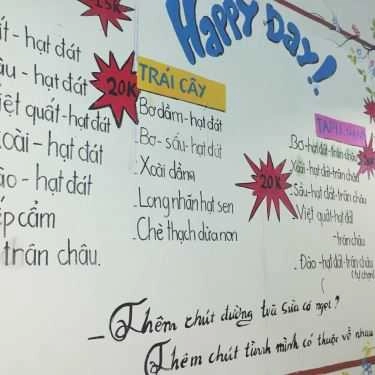 Happy Day!
15K
hạt đát
hạt đát
quất - hạt đát
hạt đát
hạt đát
cẩm
trân châu.
20K
TRÁI CÂY
Bơ dầm - hạt đát
Bơ - sầu - hạt đát
Xoài dầm
Long nhãn hạt sen
Chè thạch dừa non
20K
Bơ - hạt đát - trân châu
Xoài - hạt đát - trân châu
Sầu - hạt đát - trân châu
Việt quất - hạt đát
- trân châu
- Đào - hạt đát - trân châu
(tự chọn)
- Thêm chút đường trà sữa có ngọt?
Thêm chút tình mình có thuộc về nhau